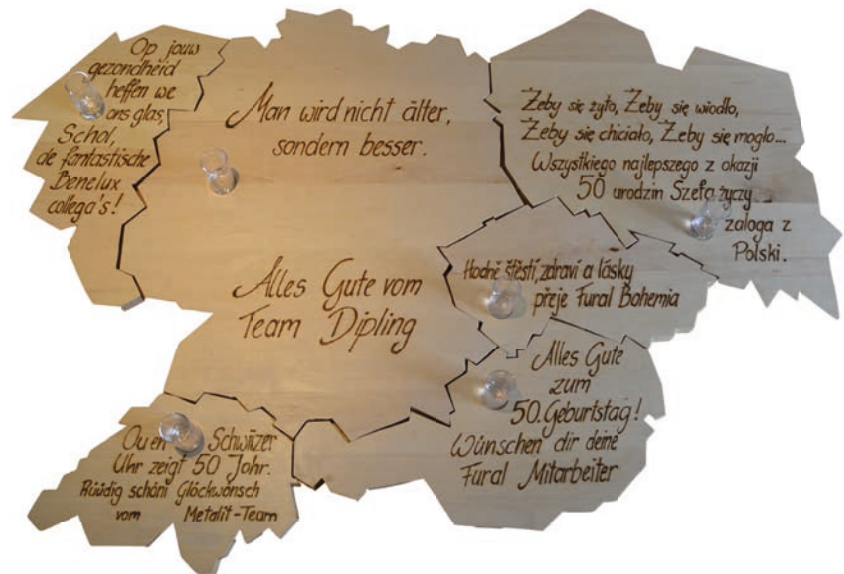 Op jouw
gezondheid
heffen we
ons glas,
Schol,
de fantastische
Benelux
collega's!
Man wird nicht älter,
sondern besser.
Alles Gute vom
Team Dipling
Żeby się żyło, Żeby się wiodło,
Żeby się chciało, Żeby się mogło...
Wszystkiego najlepszego z okazji
50 urodzin Szefa życzy
załoga z
Polski.
Hodně štěstí, zdraví a lásky
přeje Fural Bohemia
Alles Gute
zum
50. Geburtstag!
Wünschen dir deine
Fural Mitarbeiter
Ou en Schwiizer
Uhr zeigt 50 Johr.
Rüüdig schöni Glöckwönsch
vom Metalit-Team